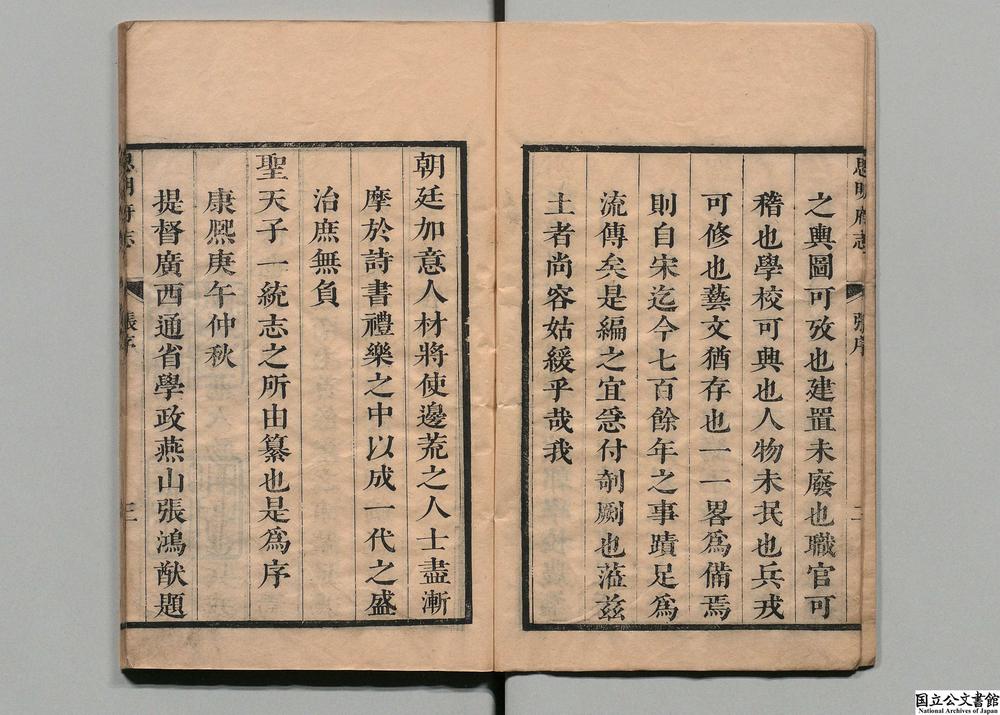 思明府志 張序 二
之輿圖可攷也建置未廢也職官可
稽也學校可興也人物未民也兵戎
可修也藝文猶存也一一畧爲備焉
則自宋迄今七百餘年之事蹟足爲
流傳矣是編之宜亟付剞劂也蒞兹
土者尚容姑緩乎哉我
朝廷加意人材將使邊荒之人士盡漸
摩於詩書禮樂之中以成一代之盛
治庶無負
聖天子一統志之所由纂也是爲序
康熙庚午仲秋
提督廣西通省學政燕山張鴻猷題
思明府志 張序 三
国立公文書館
National Archives of Japan